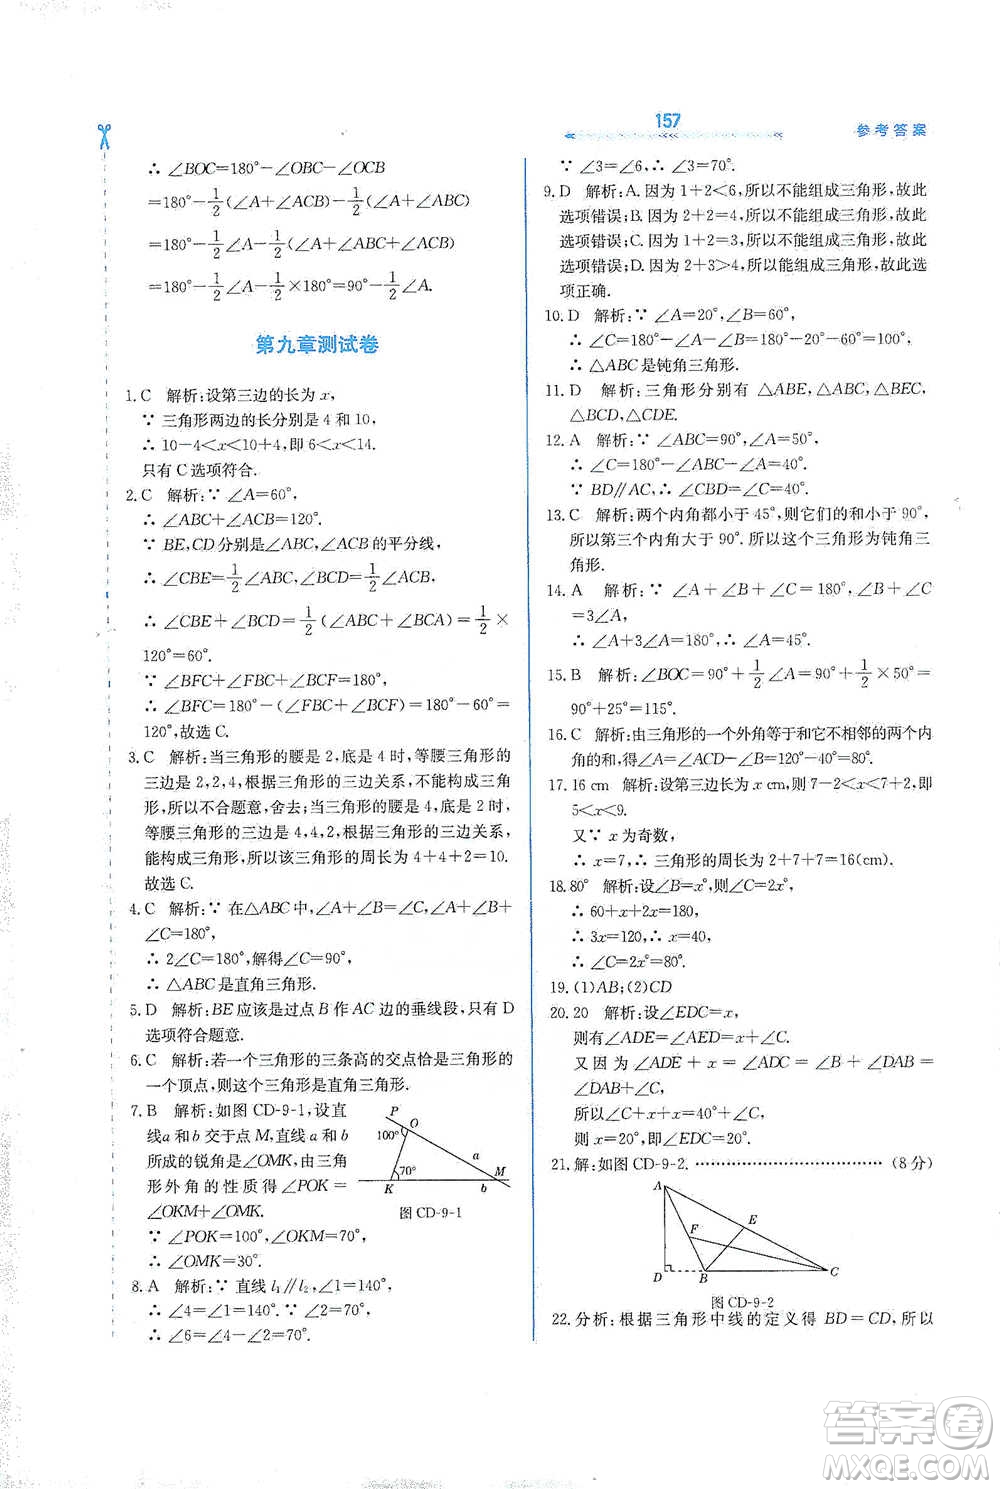 157
参考答案
∴ ∠BOC=180°-∠OBC-∠OCB
=180°-1/2(∠A+∠ABC)-1/2(∠A+∠ACB)
=180°-1/2∠A-1/2(∠A+∠ABC+∠ACB)
=180°-1/2∠A-1/2×180°=90°-1/2∠A.
第九章测试卷
1.C 解析:设第三边的长为 x,
∵ 三角形两边的长分别是 4 和 10,
∴ 10-4<x<10+4,即 6<x<14.
只有 C 选项符合.
2.C 解析:∵ ∠A=60°,
∴ ∠ABC+∠ACB=120°.
∵ BE,CD 分别是∠ABC,∠ACB 的平分线,
∴ ∠CBE=1/2∠ABC,∠BCD=1/2∠ACB.
∴ ∠CBE+∠BCD=1/2(∠ABC+∠ACB)=1/2×
120°=60°.
∵ ∠BFC+∠CBF+∠BCF=180°,
∴ ∠BFC=180°-(∠FBC+∠BCF)=180°-60°=
120°,故选 C.
3.C 解析:当三角形的腰是 2,底是 4 时,等腰三角形的
三边是 2,2,4,根据三角形的三边关系,不能构成三角
形,所以不合题意,舍去;当三角形的腰是 4,底是 2 时,
等腰三角形的三边是 4,4,2,根据三角形的三边关系,
能构成三角形,所以该三角形的周长为 4+4+2=10.
故选 C.
4.C 解析:∵ 在△ABC 中,∠A+∠B=∠C,∠A+∠B+
∠C=180°,
∴ 2∠C=180°,解得∠C=90°.
∴ △ABC 是直角三角形.
5.D 解析:BE 应该是过点 B 作 AC 边的垂线段,只有 D
选项符合题意.
6.C 解析:若一个三角形的三条高的交点恰是三角形的
一个顶点,则这个三角形是直角三角形.
7.B 解析:如图 CD-9-1,设直
线 a 和 b 交于点 M,直线 a 和 b
所成的锐角是∠OMK,由三角
形外角的性质得∠POK=
∠OKM+∠OMK.
∵ ∠POK=100°,∠OKM=70°,
∴ ∠OMK=30°.
P
O
100°
a
70°
M
K
b
图 CD-9-1
8.A 解析:∵ 直线 l₁∥l₂,∠1=140°,
∴ ∠4=∠1=140°,∠5=∠2=70°.
∴ ∠6=∠4-∠5=140°-70°=70°.
∵ ∠3=∠6,∴ ∠3=70°.
9.D 解析:A.因为 1+2<6,所以不能组成三角形,故此
选项错误;B.因为 2+2=4,所以不能组成三角形,故此
选项错误;C.因为 1+2=3,所以不能组成三角形,故此
选项错误;D.因为 2+3>4,所以能组成三角形,故此选
项正确.
10.D 解析:∵ ∠A=20°,∠B=60°,
∴ ∠C=180°-∠A-∠B=100°,
∴ △ABC 是钝角三角形.
11.D 解析:三角形分别有 △ABE,△ABC,△BEC,
△BCD,△CDE.
12.A 解析:∵ ∠ABC=90°,∠A=50°,
∴ ∠C=90°-∠A=40°.
∵ BD∥AC,∴ ∠CBD=∠C=40°.
13.C 解析:两个内角都小于 45°,则它们的和小于 90°,
所以第三个内角大于 90°.所以这个三角形为钝角三
角形.
14.A 解析:∵ ∠A+∠B+∠C=180°,∠B+∠C
=3∠A,
∴ ∠A+3∠A=180°,∴ ∠A=45°.
15.B 解析:∠BOC=90°+1/2∠A=90°+1/2×50°=
90°+25°=115°.
16.C 解析:由三角形的一个外角等于和它不相邻的两个内
角的和,得∠A=∠ACD-∠B=120°-40°=80°.
17.16 cm 解析:设第三边长为 x cm,则 7-2<x<7+2,即
5<x<9.
又∵ x 为奇数,
∴ x=7,∴三角形的周长为 2+7+7=16(cm).
18.80° 解析:设∠B=x°,则∠C=2x°,
∴ 60+x+2x=180,
∴ 3x=120,∴ x=40.
∴ ∠C=2x°=80°.
19.(1)AB;(2)CD
20.20 解析:设∠EDC=x,
则有∠ADE=∠AED=x+∠C.
又因为∠ADE+x=∠ADC=∠B+∠DAB=∠C+
∠DAB,
所以∠C+x+x=40°+∠C.
所以 x=20°,即∠EDC=20°.
21.解:如图 CD-9-2. ……………………………(8 分)
A
E
F
D
B
C
图 CD-9-2
22.分析:根据三角形中线的定义得 BD=CD,所以
答案卷
MXQE.COM